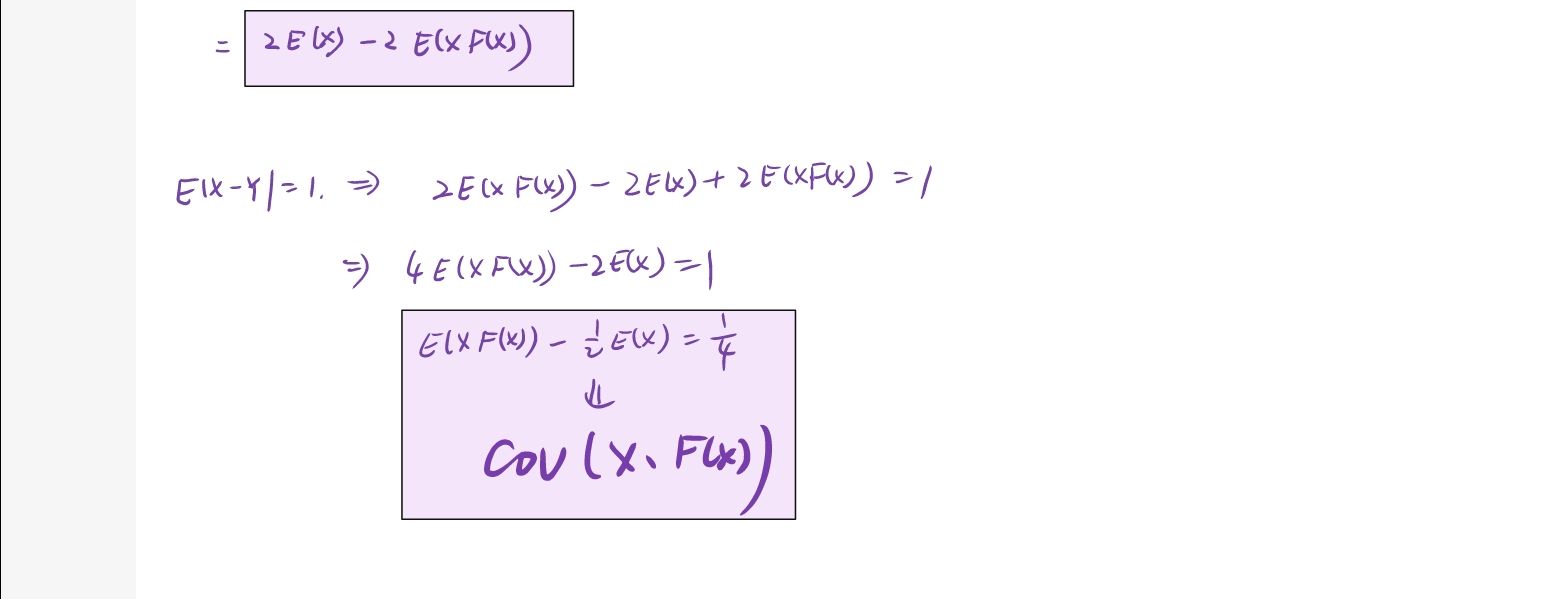 = 2E(x) - 2 E(x F(x))
E|X-Y|=1. ⇒ 2E(x F(x)) - 2E(x) + 2E(xF(x)) = 1
⇒ 4E(x F(x)) - 2E(x) = 1
E(x F(x)) - 1/2 E(x) = 1/4
⇓
Cov (x、F(x))